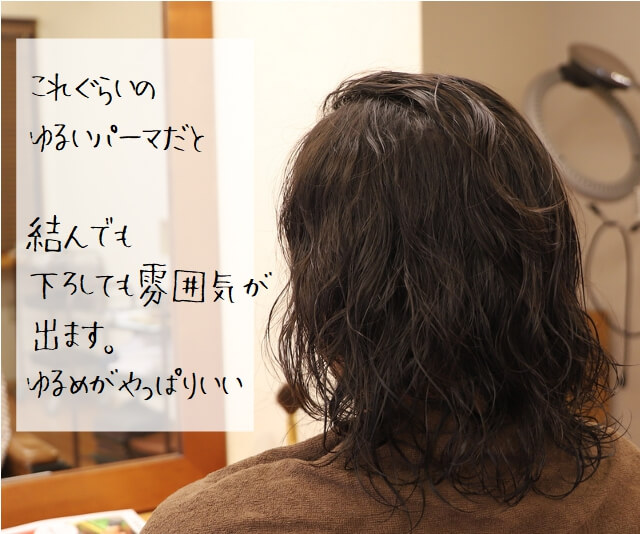 これぐらいの
ゆるいパーマだと
結んでも
下ろしても雰囲気が
出ます。
ゆるめがやっぱりいい